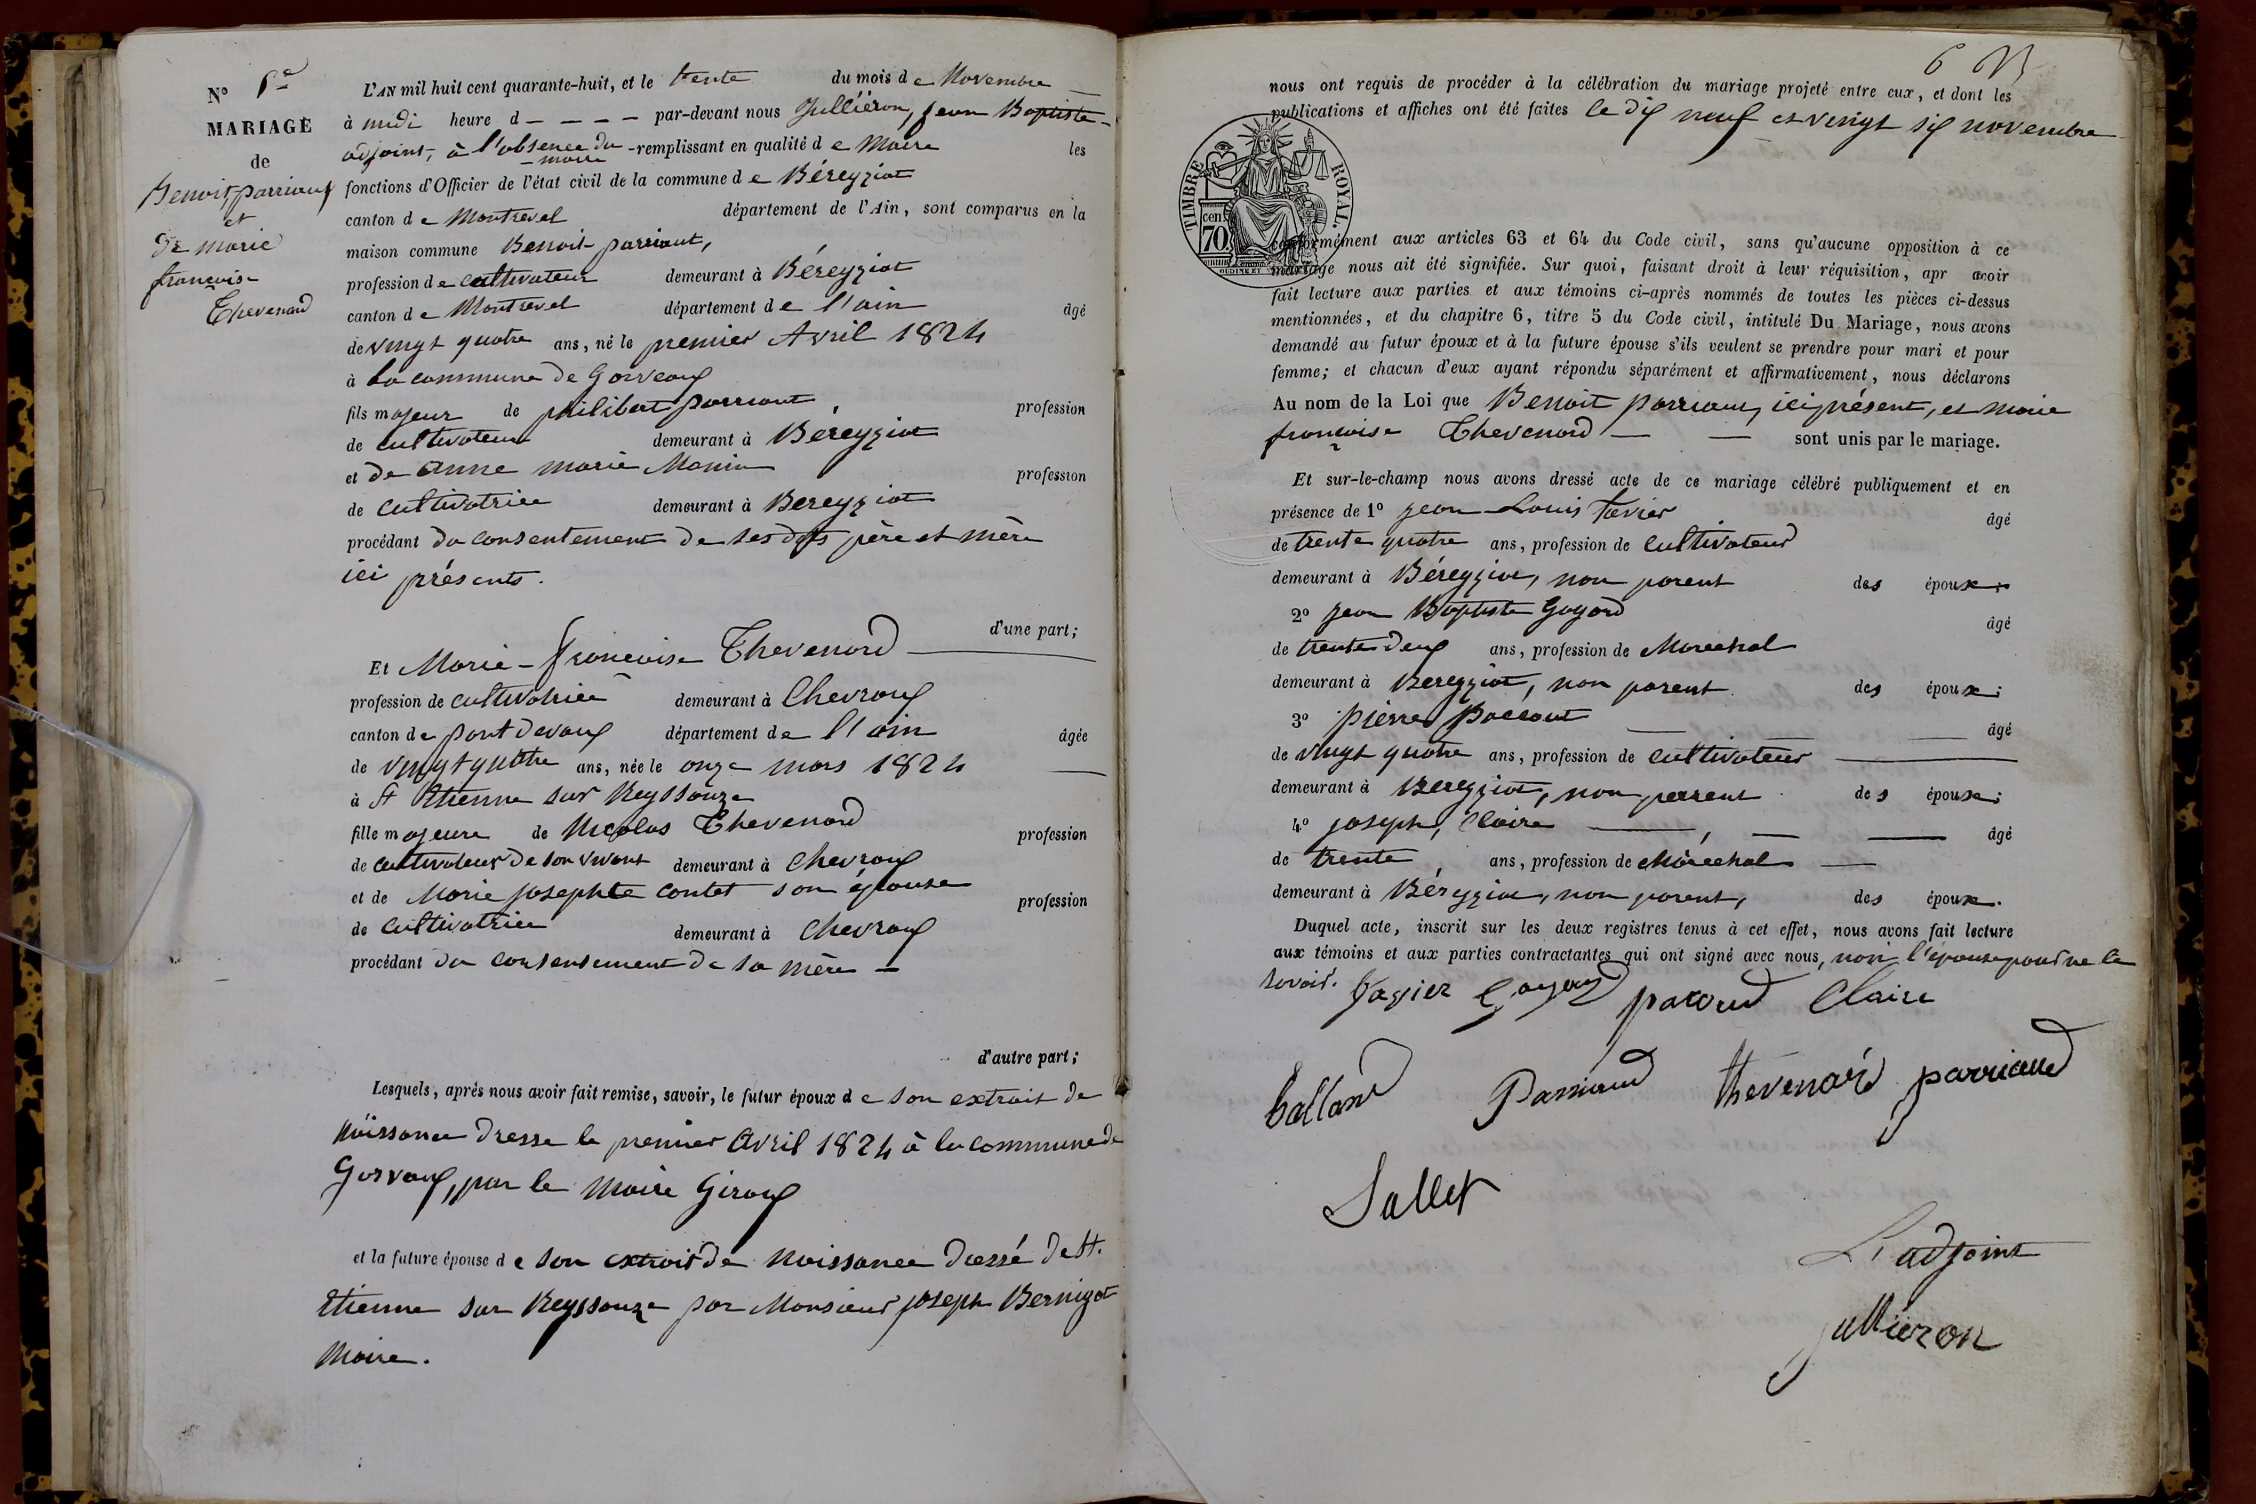 N° 6e
MARIAGE
de
Benoit parriaux
et
De marie
françoise
Thevenard
L'AN mil huit cent quarante-huit, et le trente du mois de Novembre
à midi heure d — — — — par-devant nous Jullièron, Jean Baptiste
adjoint, à l'absence du maire remplissant en qualité de Maire les
fonctions d'Officier de l'état civil de la commune de Béreyziat
canton de Montrevel département de l'Ain, sont comparus en la
maison commune Benoit parriaut,
profession de cultivateur demeurant à Béreyziat
canton de Montrevel département de l'ain âgé
de vingt quatre ans, né le premier Avril 1824
à la commune de Gorveaux
fils majeur de philibert parriaut profession
de cultivateur demeurant à Béreyziat
et de Anne marie Manin profession
de cultivatrice demeurant à Bereyziat
procédant du consentement de ses dits père et mère
ici présents.
d'une part;
Et Marie-françoise Thevenard
profession de cultivatrice demeurant à Chevroux
canton de pont devaux département de l'ain âgée
de vingt quatre ans, née le onze mars 1824
à St Etienne sur Reyssouze
fille majeure de Nicolas Thevenard profession
de cultivateur de son vivant demeurant à Chevroux
et de Marie josephte contet son épouse profession
de cultivatrice demeurant à Chevroux
procédant du consensement de sa mère —
d'autre part;
Lesquels, après nous avoir fait remise, savoir, le futur époux de son extrait de
naissance dresse le premier Avril 1824 à la commune de
Gorvaux, par le Maire Giroux
et la future épouse de son extrait de naissance dressé de St.
Etienne sur Reyssouze par Monsieur joseph Bernigot
Maire.
6
nous ont requis de procéder à la célébration du mariage projeté entre eux, et dont les
publications et affiches ont été faites le dix neuf et vingt six novembre
TIMBRE ROYAL.
cen.
70
conformément aux articles 63 et 64 du Code civil, sans qu'aucune opposition à ce
mariage nous ait été signifiée. Sur quoi, faisant droit à leur réquisition, apr avoir
fait lecture aux parties et aux témoins ci-après nommés de toutes les pièces ci-dessus
mentionnées, et du chapitre 6, titre 5 du Code civil, intitulé Du Mariage, nous avons
demandé au futur époux et à la future épouse s'ils veulent se prendre pour mari et pour
femme; et chacun d'eux ayant répondu séparément et affirmativement, nous déclarons
Au nom de la Loi que Benoit parriaux, ici présent, et marie
françoise Thevenard — — sont unis par le mariage.
Et sur-le-champ nous avons dressé acte de ce mariage célébré publiquement et en
présence de 1° jean Louis favier âgé
de trente quatre ans, profession de cultivateur
demeurant à Béreyziat, non parent des époux;
2° jean Baptiste Goyard âgé
de trente deux ans, profession de Marechal
demeurant à Bereyziat, non parent des époux;
3° pierre paccaut âgé
de vingt quatre ans, profession de cultivateur
demeurant à Bereyziat, non parrent des époux;
4° joseph, Claire âgé
de trente ans, profession de Maréchal
demeurant à Béreyziat, non parent, des époux.
Duquel acte, inscrit sur les deux registres tenus à cet effet, nous avons fait lecture
aux témoins et aux parties contractantes qui ont signé avec nous, non l'épouse pour ne le
savoir.
favier Goyard pacoud Claire
balland Parriaud thevenard parriaud
Sallet
L'adjoint
Jullieron